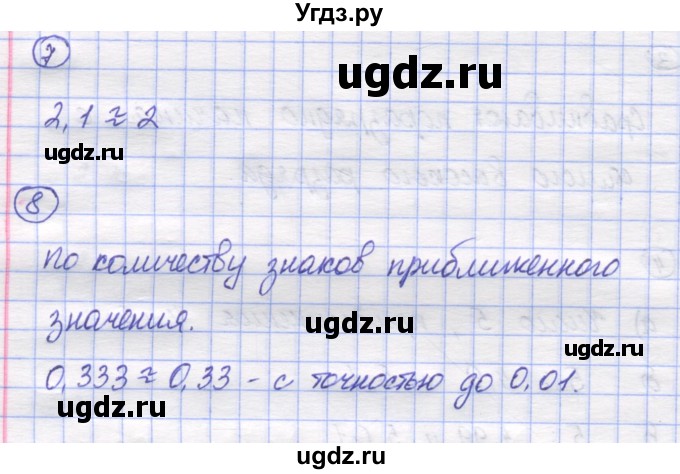 Угдз.ру
7
ugdz.ru
2,1 ≈ 2
ugdz.ru
8
ugdz.ru
по количеству знаков приближенного
значения.
ugdz.ru
0,333 ≈ 0,33 - с точностью до 0,01.
ugdz.ru
ugdz.ru